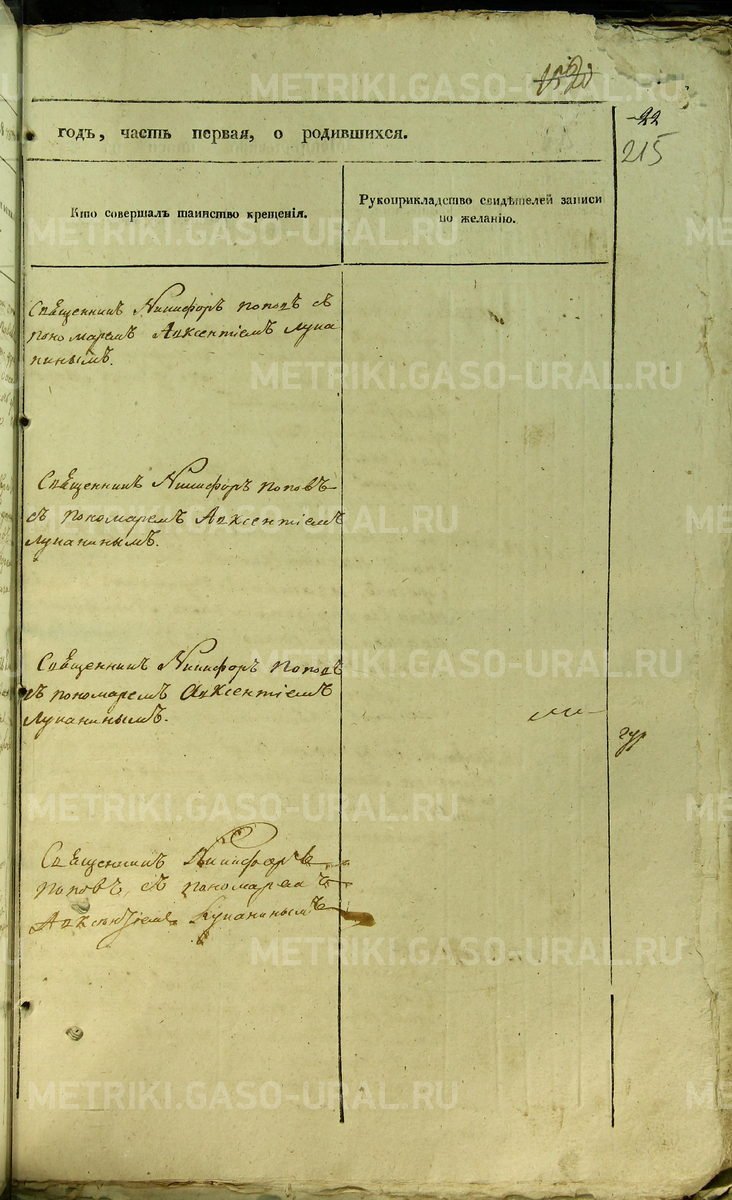 22
215
годъ, часть первая, о родившихся.
Кто совершалъ таинство крещенія.
Рукоприкладство свидѣтелей записи
по желанію.
Священникъ Никифоръ Поповъ съ
пономаремъ Авксентіемъ Лука
нинымъ.
Священникъ Никифоръ Поповъ
съ пономаремъ Авксентіемъ
Луканинымъ.
Священникъ Никифоръ Поповъ
съ пономаремъ Авксентіемъ
Луканинымъ.
Священникъ Никифоръ
Поповъ, съ пономаремъ
Авксентіемъ Луканинымъ
METRIKI.GASO-URAL.RU